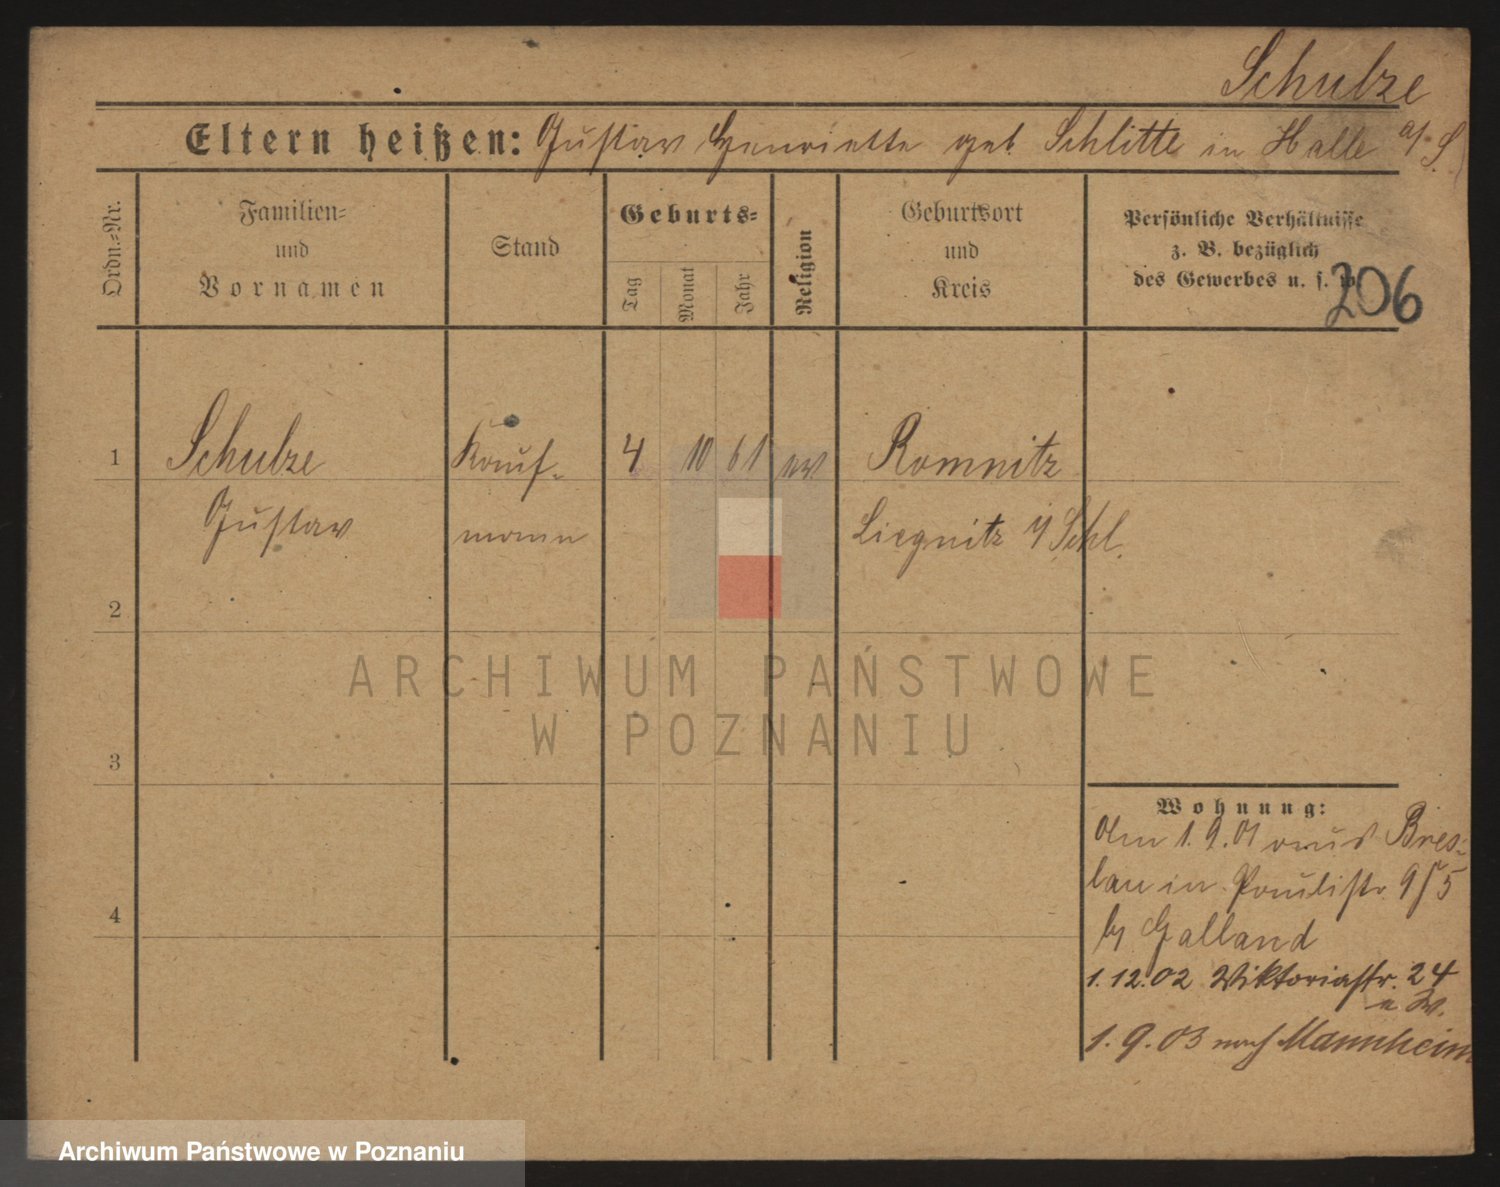 Schulze
Eltern heißen: Gustav Henriette geb. Schlitte in Halle a/S.
Ordn.=Nr.
Familien=
und
Vornamen
Stand
Geburts=
Tag
Monat
Jahr
Religion
Geburtsort
und
Kreis
Persönliche Verhältnisse
z. B. bezüglich
des Gewerbes u. s. w.
206
1 Schulze Kauf- 4 10 61 ev. Romnitz
Gustav mann Liegnitz i/Schl.
2
3
4
Wohnung:
Am 1.9.01 aus Bres-
lau in Paulistr. 9 5
by Galland
1.12.02 Viktoriastr. 24
e W.
1.9.03 nach Mannheim
ARCHIWUM PAŃSTWOWE
W POZNANIU
Archiwum Państwowe w Poznaniu